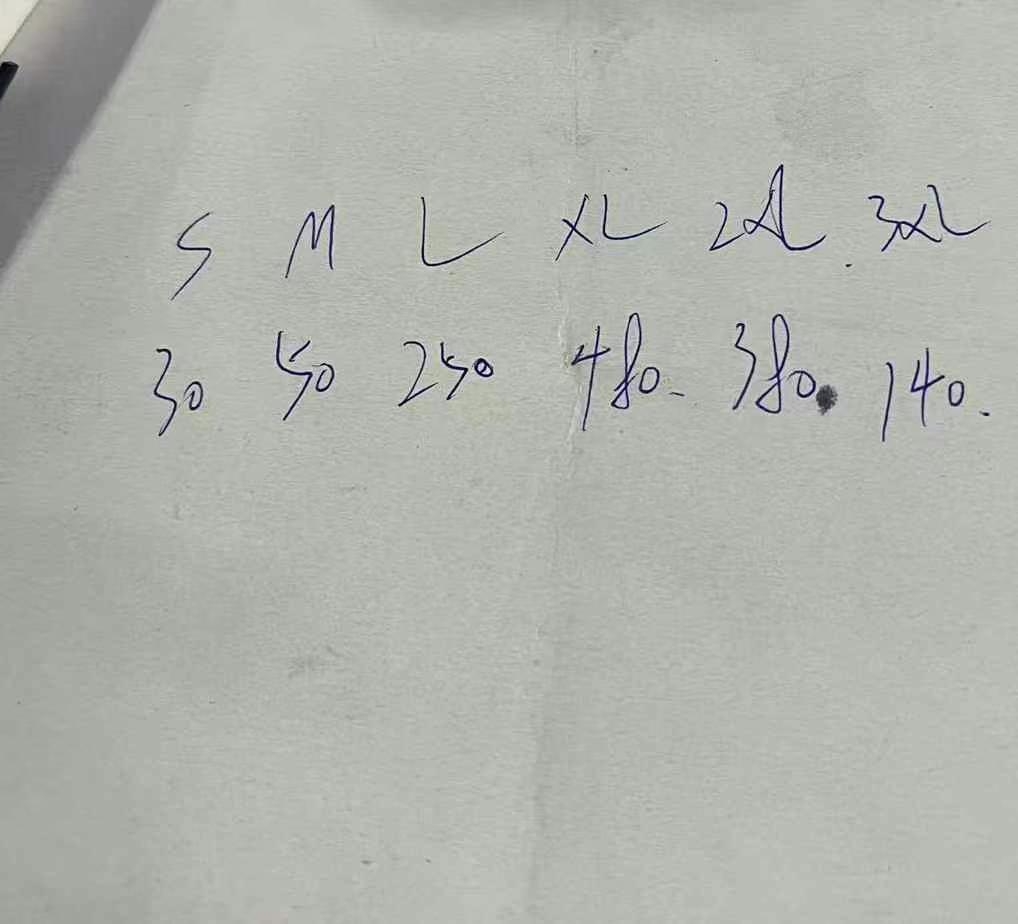 S M L XL 2XL 3XL
30 50 250 480. 380. 140.